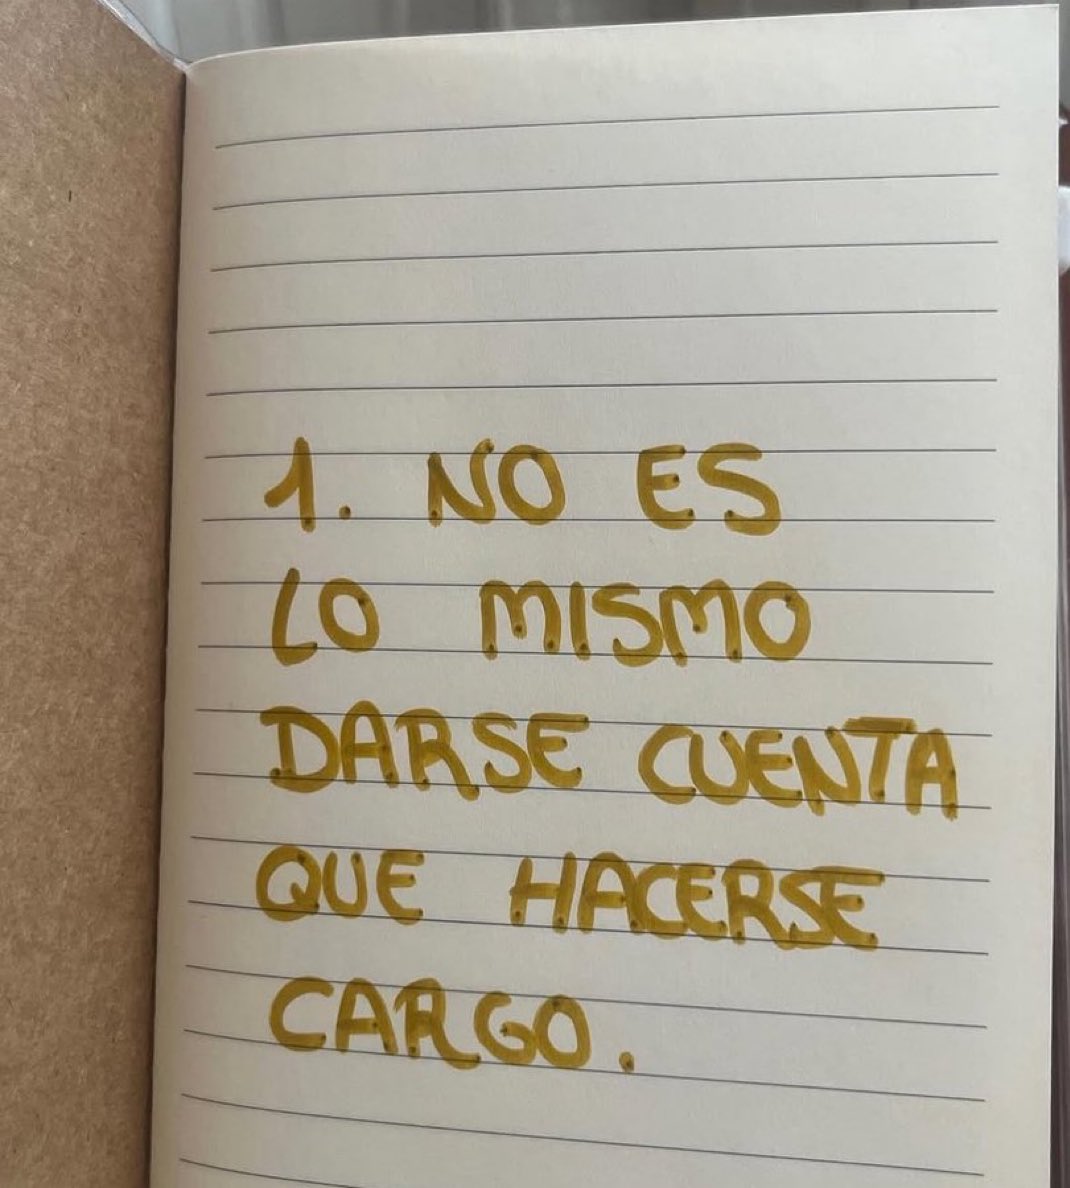 1. NO ES
LO MISMO
DARSE CUENTA
QUE HACERSE
CARGO.